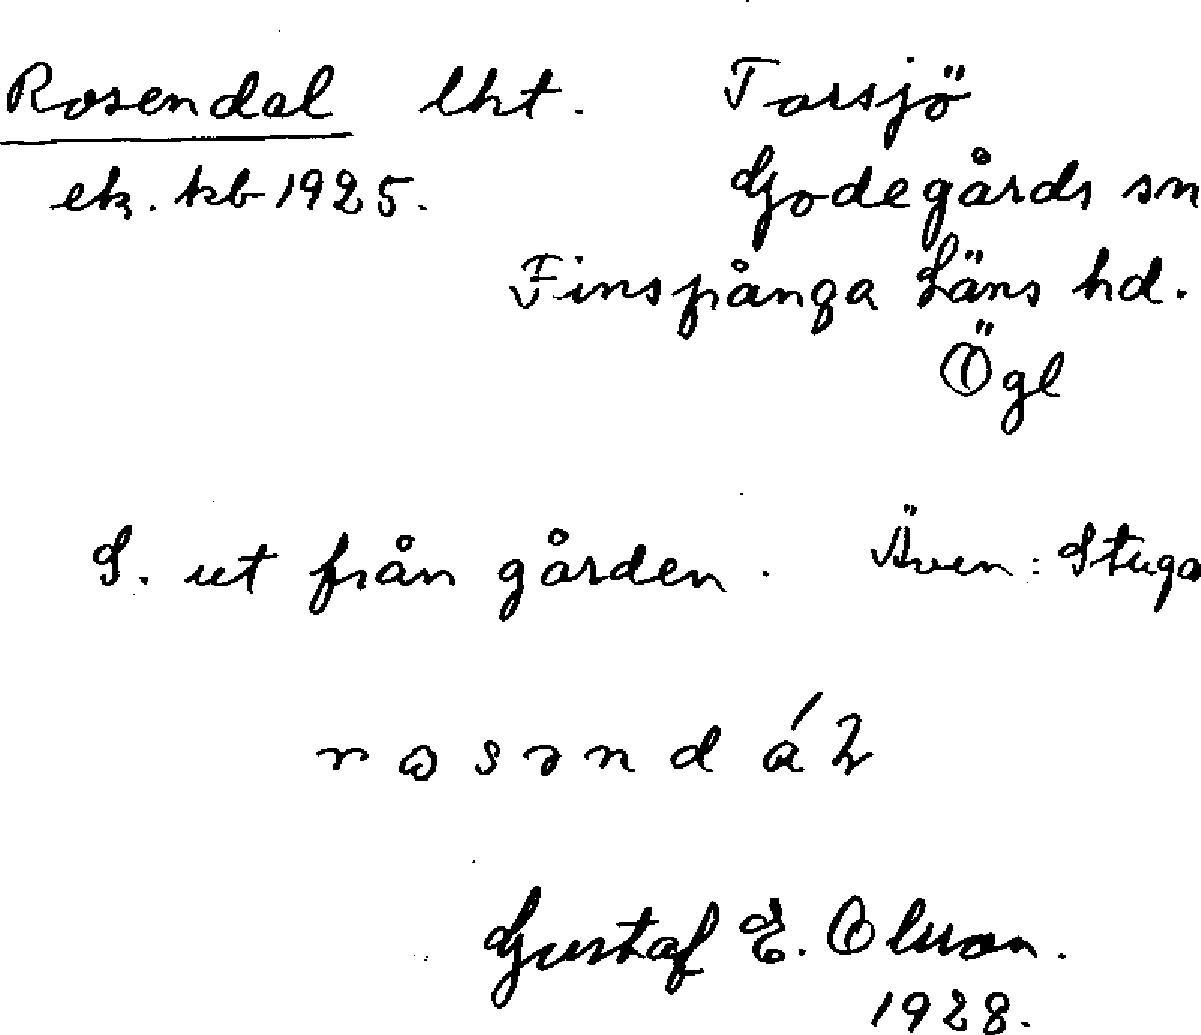 Rosendal lht. Tarsjö
ek. kb 1925. Godegårds sn
Finspånga Läns hd.
Ögl
S. ut från gården. Även: Stuga
rosəndá
Gustaf E. Olsson.
1928.